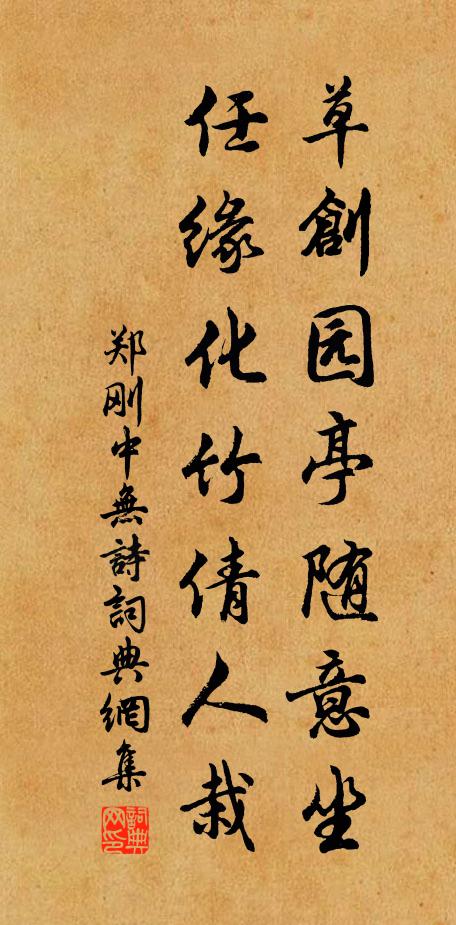 草創园亭随意坐
任缘化竹倩人栽
郑刚中無詩詞典網集
詞典网印